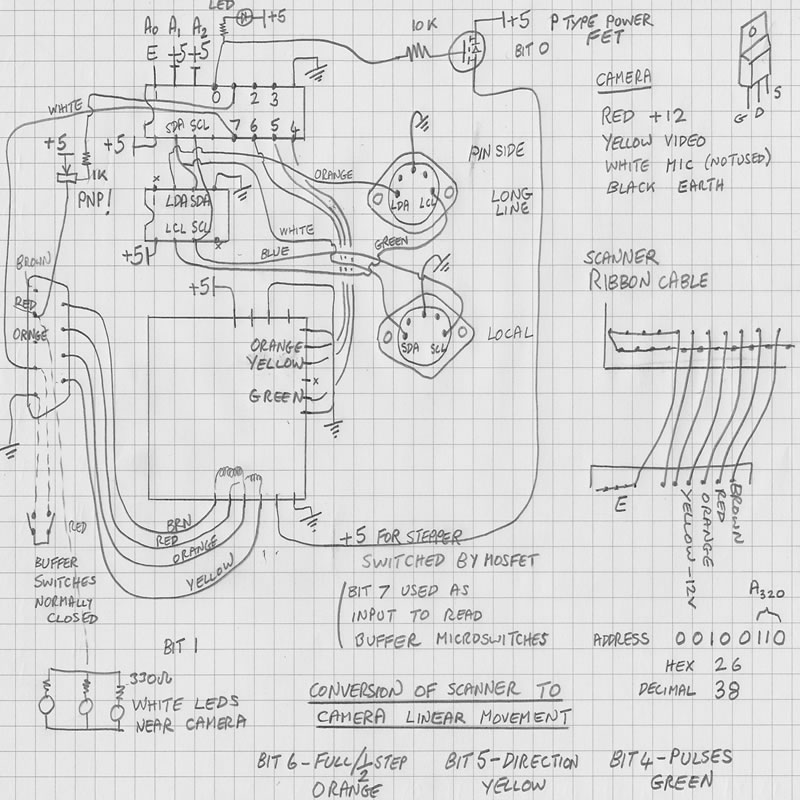 LED
+5
A0 A1 A2
E +5 +5
10K
+5
BIT 0
P TYPE POWER
FET
G D S
CAMERA
RED +12
YELLOW VIDEO
WHITE MIC (NOT USED)
BLACK EARTH
WHITE
0 2 3
SDA SCL 7 6 5 4
+5
+5
1K
PNP!
x
LDA SDA
LCL SCL
x
+5
ORANGE
WHITE
BLUE
GREEN
PIN SIDE
LDA LCL
LONG
LINE
SDA SCL
LOCAL
BROWN
RED
ORANGE
+5
ORANGE
YELLOW
x
GREEN
BRN
RED
ORANGE
YELLOW
RED
BUFFER
SWITCHES
NORMALLY
CLOSED
+5 FOR STEPPER
SWITCHED BY MOSFET
BIT 7 USED AS
INPUT TO READ
BUFFER MICROSWITCHES
SCANNER
RIBBON CABLE
E
YELLOW-12V
ORANGE
RED
BROWN
A320
ADDRESS 00100110
HEX 26
DECIMAL 38
BIT 1
330Ω
WHITE LEDS
NEAR CAMERA
CONVERSION OF SCANNER TO
CAMERA LINEAR MOVEMENT
BIT 6-FULL/1/2 STEP
ORANGE
BIT 5-DIRECTION
YELLOW
BIT 4-PULSES
GREEN